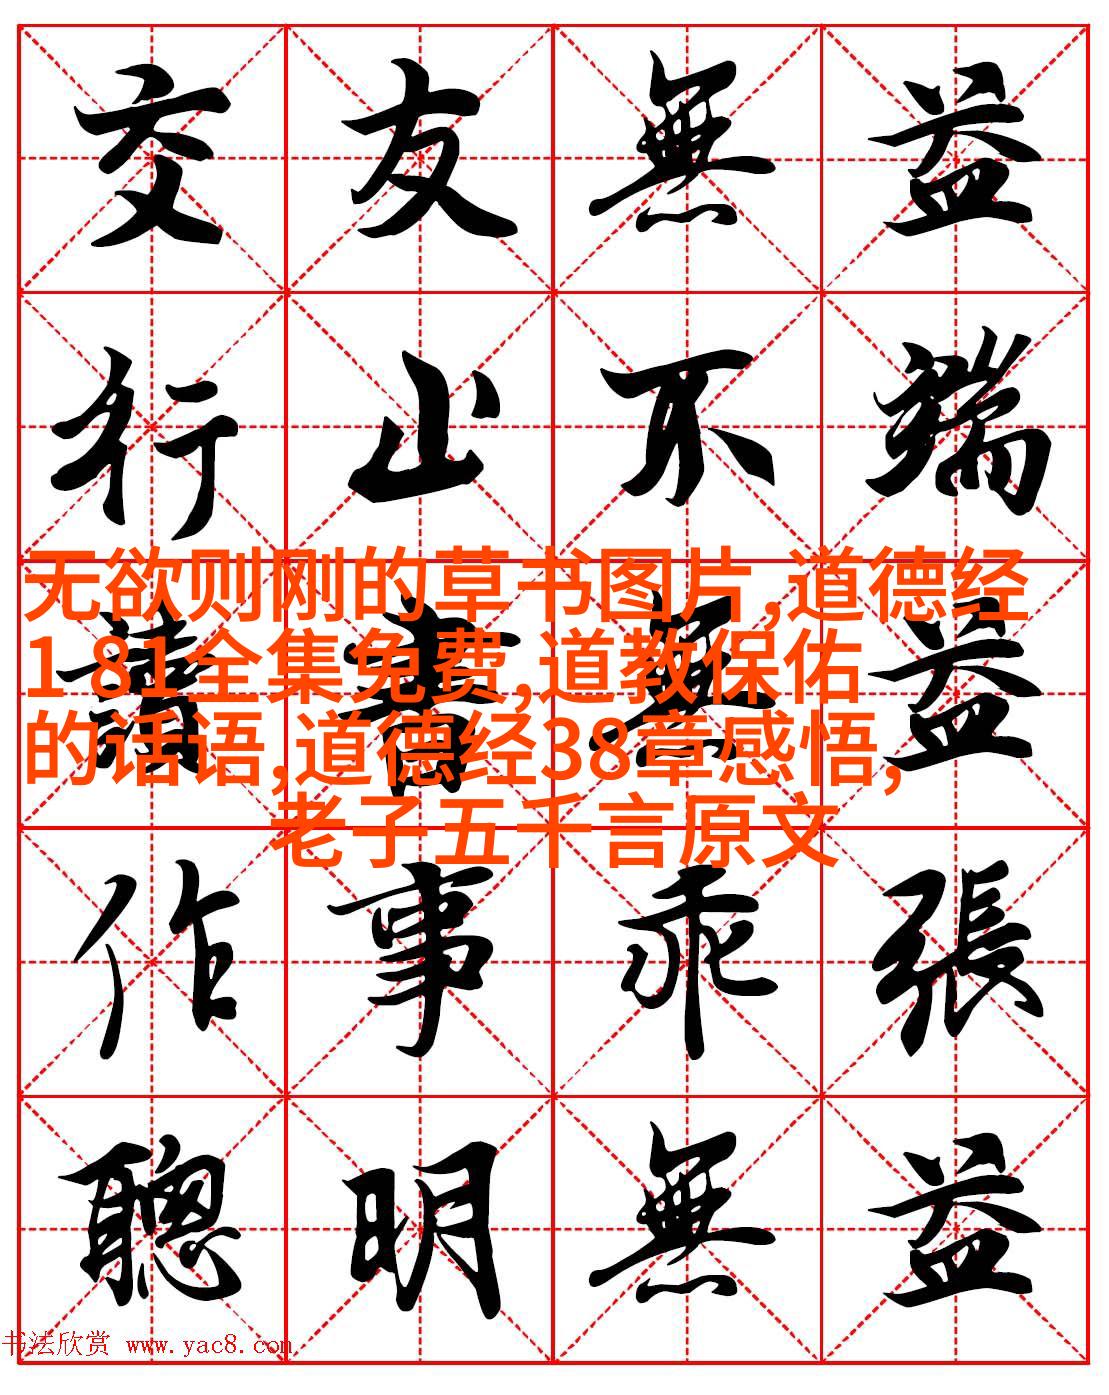 交友無益
行止不端
無欲则刚的草书图片,道德经
1 81全集免费,道教保佑
的话语,道德经38章感悟,
老子五千言原文
讀書無益
作事乖張
聰明無益
书法欣赏 www.yac8.com